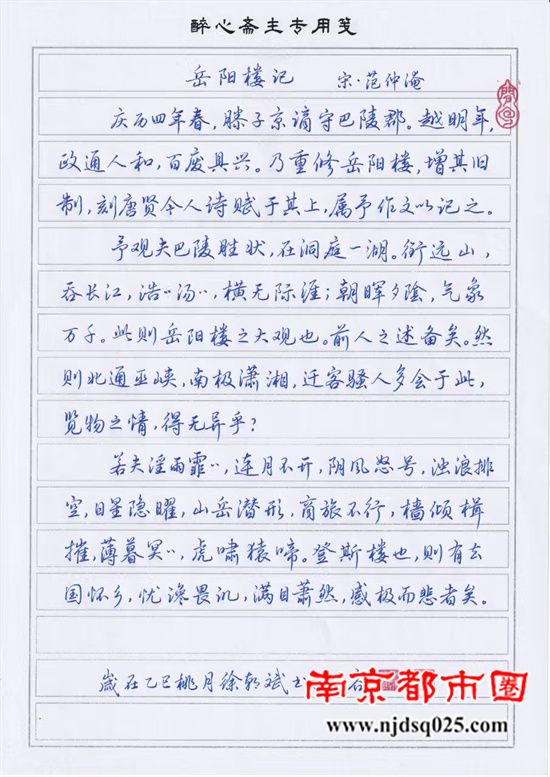 醉心斋主专用笺
岳阳楼记 宋·范仲淹
庆历四年春，滕子京谪守巴陵郡。越明年，
政通人和，百废具兴。乃重修岳阳楼，增其旧
制，刻唐贤今人诗赋于其上，属予作文以记之。
予观夫巴陵胜状，在洞庭一湖。衔远山，
吞长江，浩〃汤〃，横无际涯；朝晖夕陰，气象
万千。此则岳阳楼之大观也。前人之述备矣。然
则北通巫峡，南极潇湘，迁客骚人多会于此，
览物之情，得无异乎？
若夫淫雨霏〃，连月不开，阴风怒号，浊浪排
空，日星隐曜，山岳潜形，商旅不行，樯倾楫
摧，薄暮冥〃，虎啸猿啼。登斯楼也，则有去
国怀乡，忧谗畏讥，满目萧然，感极而悲者矣。
岁在乙巳桃月徐 斌书
南京都市圈
www.njdsq025.com